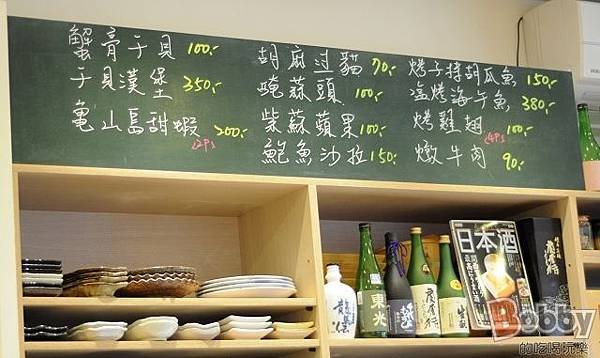 蟹膏干貝 100.
干貝漢堡 350.
龜山島甜蝦 200.
(2P)
胡麻过貓 70.
醃蒜頭 100.
柴蘇蘋果 100.
鮑魚沙拉 150.
烤子持胡瓜魚 150.
塩烤海午魚 380.
烤雞翅 100.
(4P)
燉牛肉 90.
日本酒
東光
Bobby
的吃喝玩樂